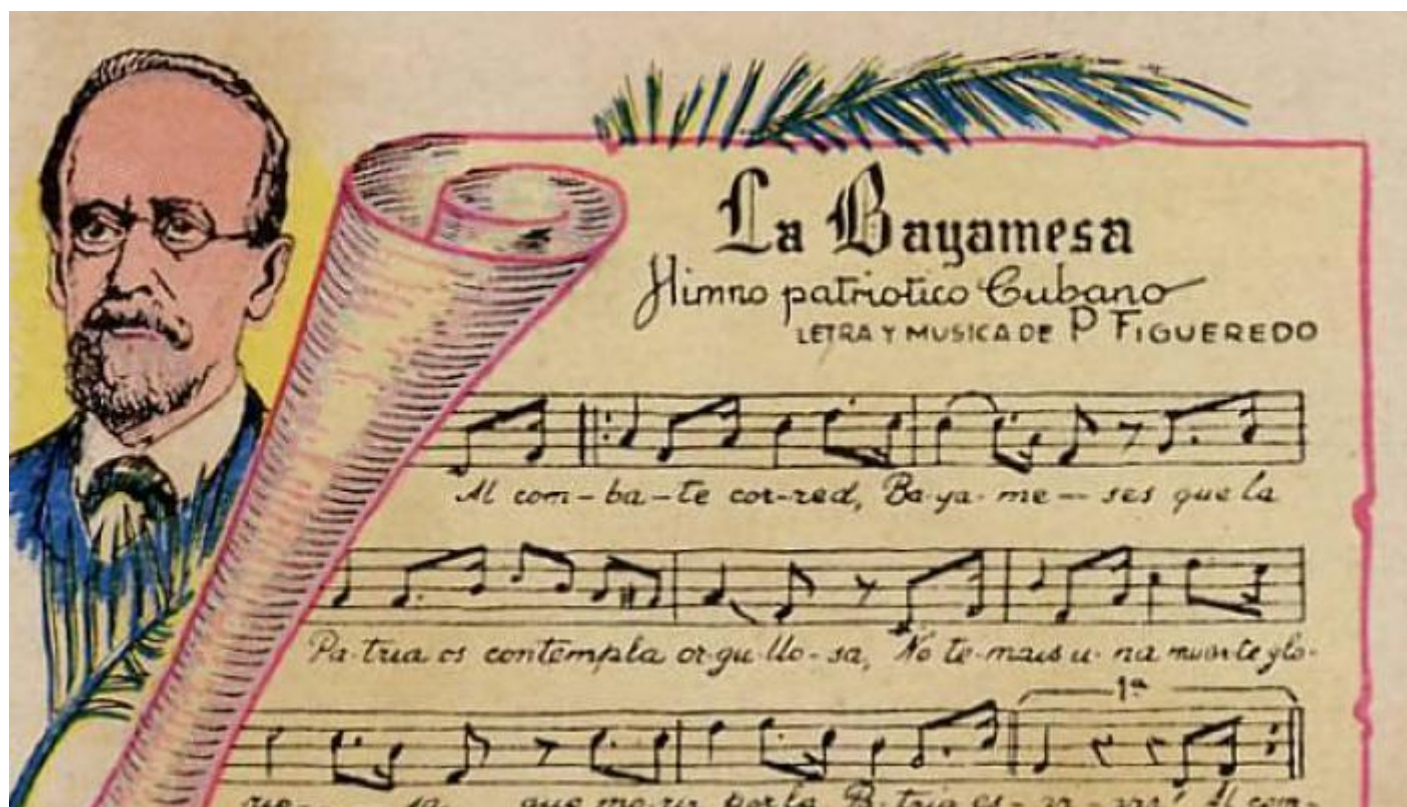 La Bayamesa
Himno patriotico Cubano
LETRA Y MUSICA DE P FIGUEREDO
Al com-ba-te cor-red, Ba-ya-me-ses que la
Pa-tria os contempla or-gu-llo-sa, No te-mais u-na muerte glo-
1ª
rio- sa que mo-rir por la Pa-tria es